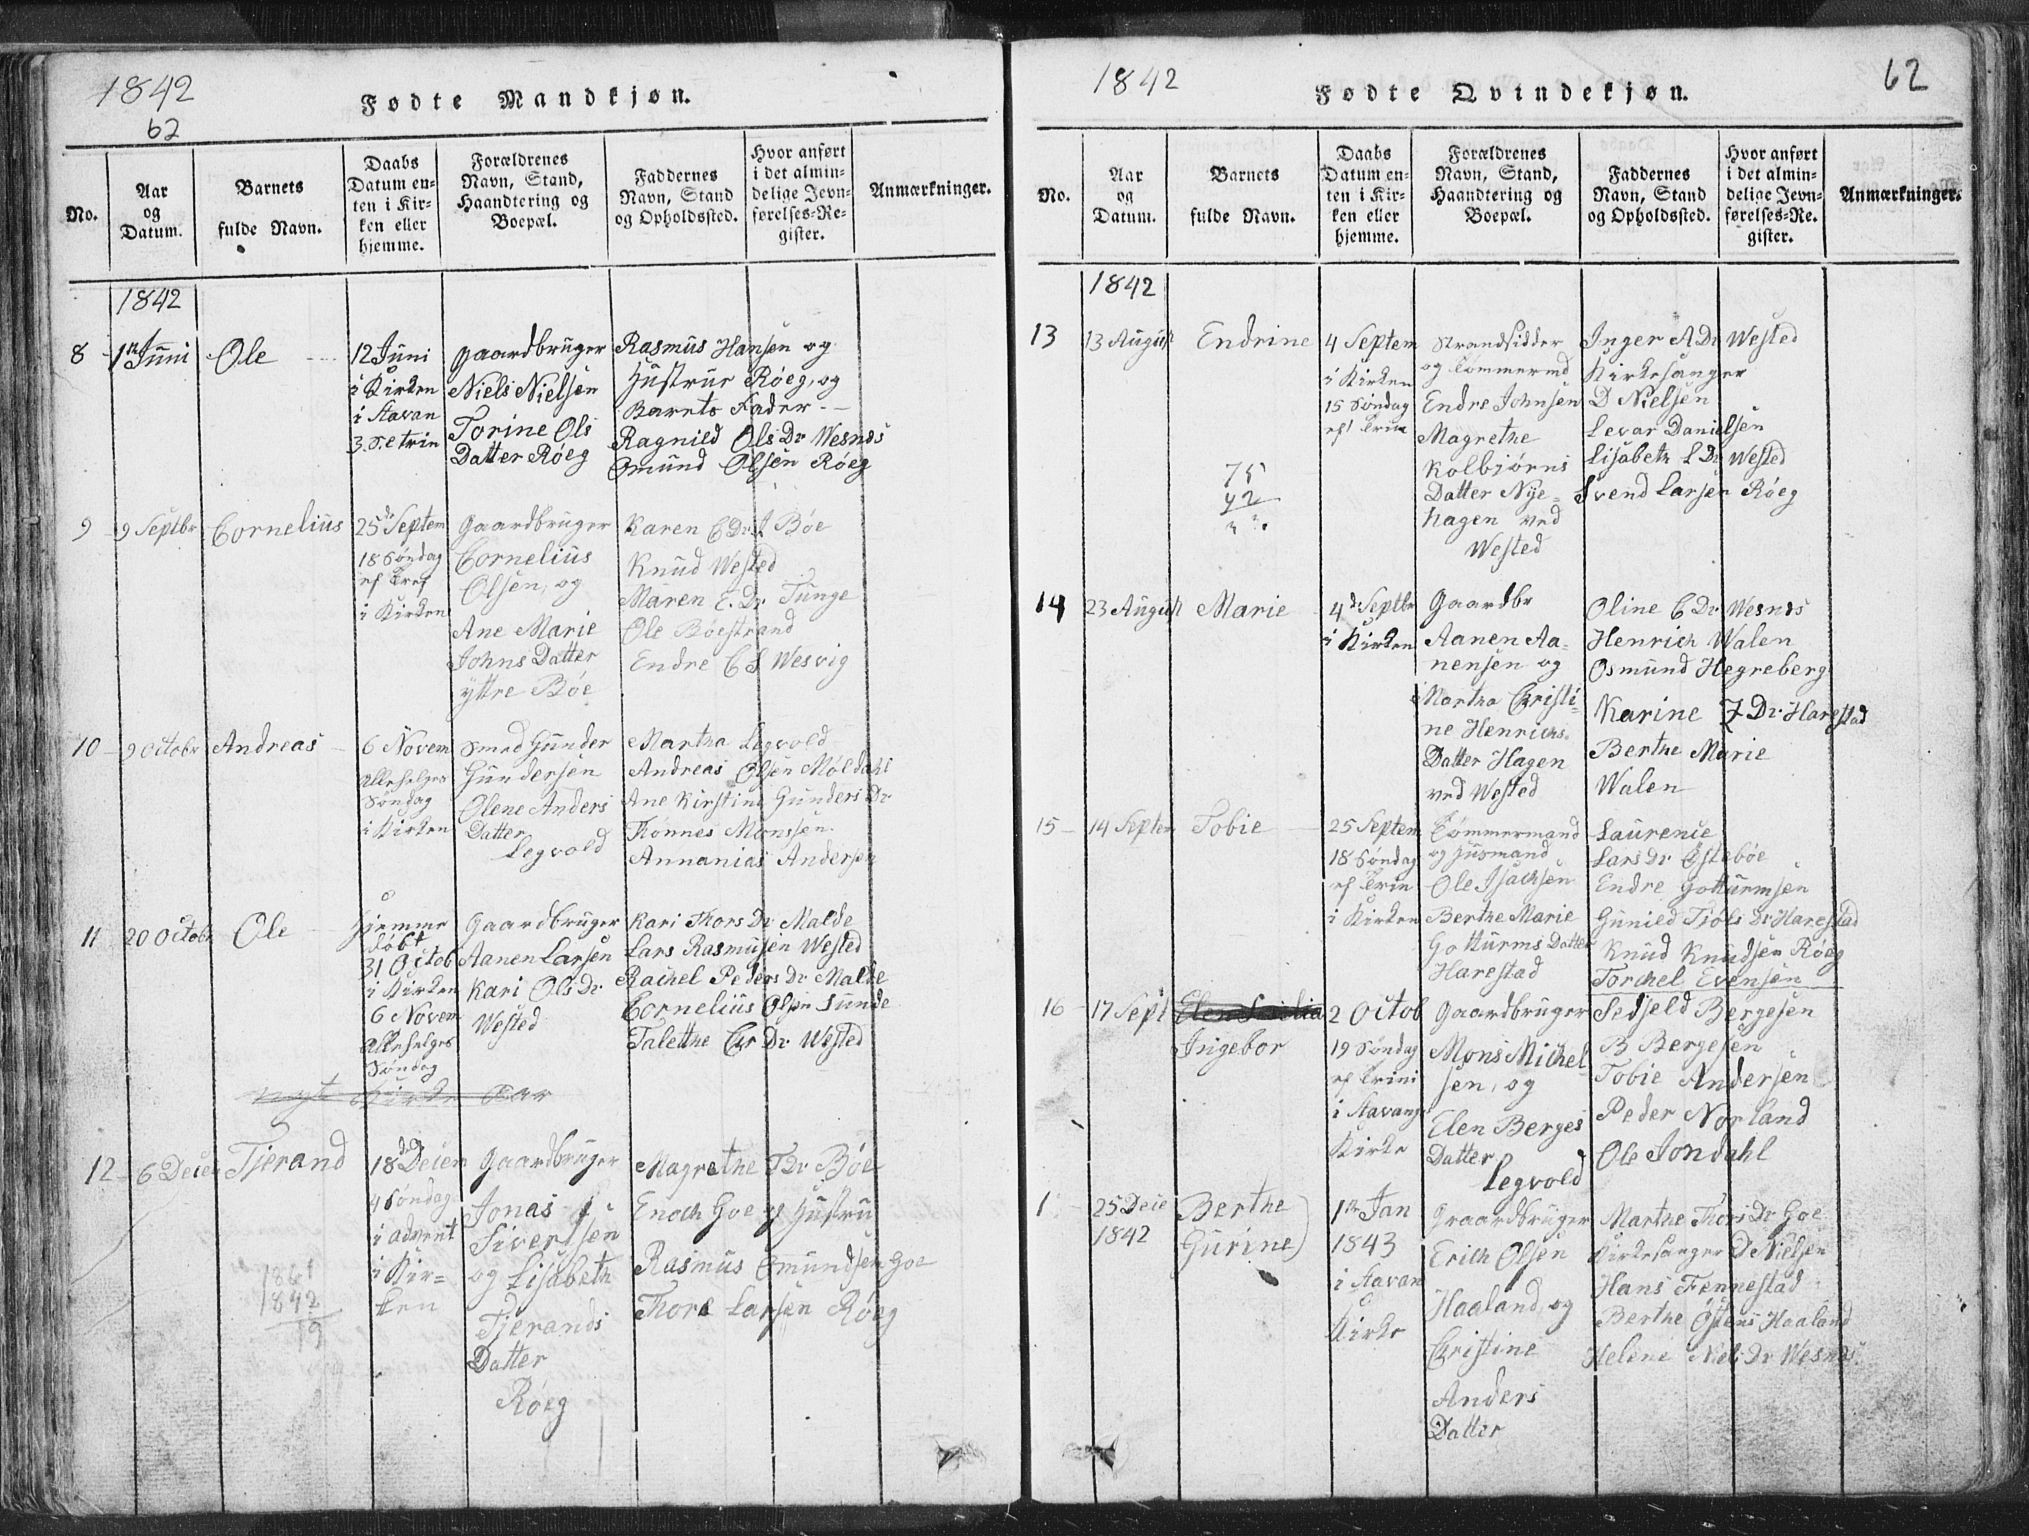 1842
62
Fødte Mandkjøn.
No.
Aar
og
Datum.
Barnets
fulde Navn.
Daabs
Datum en-
ten i Kir-
ken eller
hjemme.
Forældrenes
Navn, Stand,
Haandtering og
Boepæl.
Faddernes
Navn, Stand
og Opholdssted.
Hvor anført
i det almin-
delige Jevn-
førelses-Re-
gister.
Anmærkninger.
1842
8
1te Juni
Ole
12 Juni
i Kirken
i Stavan
3 S. e trin
Gaardbruger
Niels Nielsen
Torine Ols
Datter Røeg
Rasmus Hansen og
Hustrue Røeg, og
Barnets Fader
Ragnild Ols Dr Wesnes
Omund Olsen Røeg
9
9 Septbr
Cornelius
25de Septem
18 Søndag
ef Tref
i Kirken
Gaardbruger
Cornelius
Olsen, og
Ane Marie
Johns Datter
yttre Bøe
Karen C Dr. Bøe
Knud Wested
Maren E. Dr Tunge
Ole Bøestrand
Endre C S Wesvig
10
9 Octobr
Andreas
6 Novem
Allehelges
Søndag
i Kirken
Smed Gunder
Gundersen
Olene Anders
Datter
Legvold
Martha Legvold
Andreas Olsen Møldahl
Ane Kirstina Gunders Dr
Thønnes Monssen
Annanias Andersen
11
20 Octobr
Ole
Hjemme
døbt
31 Octob
i Kirken
6 Novem
Allehelges
Søndag
Gaardbruger
Aanen Larsen
Kari Ols Dr
Wested
Kari Thors Dr Malde
Lars Rasmusen Wested
Rachel Peders Dr Malde
Cornelius Olsen Sunde
Talette Chr Dr Wested
nyt Kirke Aar
12
6 Decem
Tjerand
18de Decem
4 Søndag
i advent
i Kir-
ken
Gaardbruger
Jonas
Sivertsen
og Lisabeth
Tjerands
Datter
Røeg
Magrethe T Dr Bøe
Enoch Goe og Hustru
Rasmus Omundsen Goe
Thore Larsen Røeg
1861
1842
19
1842
62
Fødte Qvindekjøn.
No.
Aar
og
Datum.
Barnets
fulde Navn.
Daabs
Datum en-
ten i Kir-
ken eller
hjemme.
Forældrenes
Navn, Stand,
Haandtering og
Boepæl.
Faddernes
Navn, Stand
og Opholdssted.
Hvor anført
i det almin-
delige Jevn-
førelses-Re-
gister.
Anmærkninger.
1842
13
13 August
Endrine
4 Septem
i Kirken
15 Søndag
ef Trin
Strandsidder
og Tømmermd
Endre Johnsen
Magrethe
Kolbjørns
Datter Nye-
hagen ved
Wested
Inger A Dr Wested
Kirkesanger
D Nielsen
Levar Danielsen
Lisabeth L Dr Wested
Svend Larsen Røeg
75
42
14
23 August
Marie
4de Septbr
i Kirken
Gaardbr
Aanen Aa-
nensen og
Martha Christi-
ne Henrichs
Datter Hagen
ved Wested
Oline C Dr Wesnes
Henrich Walen
Osmund Hegreberg
Karine J Dr Harestad
Berthe Marie
Walen
15
14 Septem
Tobie
25 Septem
18 Søndag
ef Trin
i Kirken
Tømmermand
og Husmand
Ole Isachsen
Berthe Marie
Gotturms Datter
Harestad
Laurence
Lars Dr Østebøe
Endre Gotturmsen
Gunied Tjøls Dr Harestad
Knud Knudsen Røeg
Torchel Evensen
16
17 Sept
Elen
Ingebor
2 Octob
19 Søndag
ef Trini
i Stavang
Kirke
Gaardbruger
Mons Michel-
sen, og
Elen Berges
Datter
Legvold
Sedseld Bergesen
B Bergesen
Tobie Andersen
Peder Norland
Ole Jondahl
1
25 Dece
1842
Berthe
Gurine
1te Jan
1843
i Stavan
Kirke
Graardbruger
Erich Olsen
Haaland, og
Christine
Anders
Datter
Marthe Thors Dr Goe
Kirkesanger D Nielsen
Hans Fennestad
Berthe Østens Haaland
Helene Niels Dr Wesnes